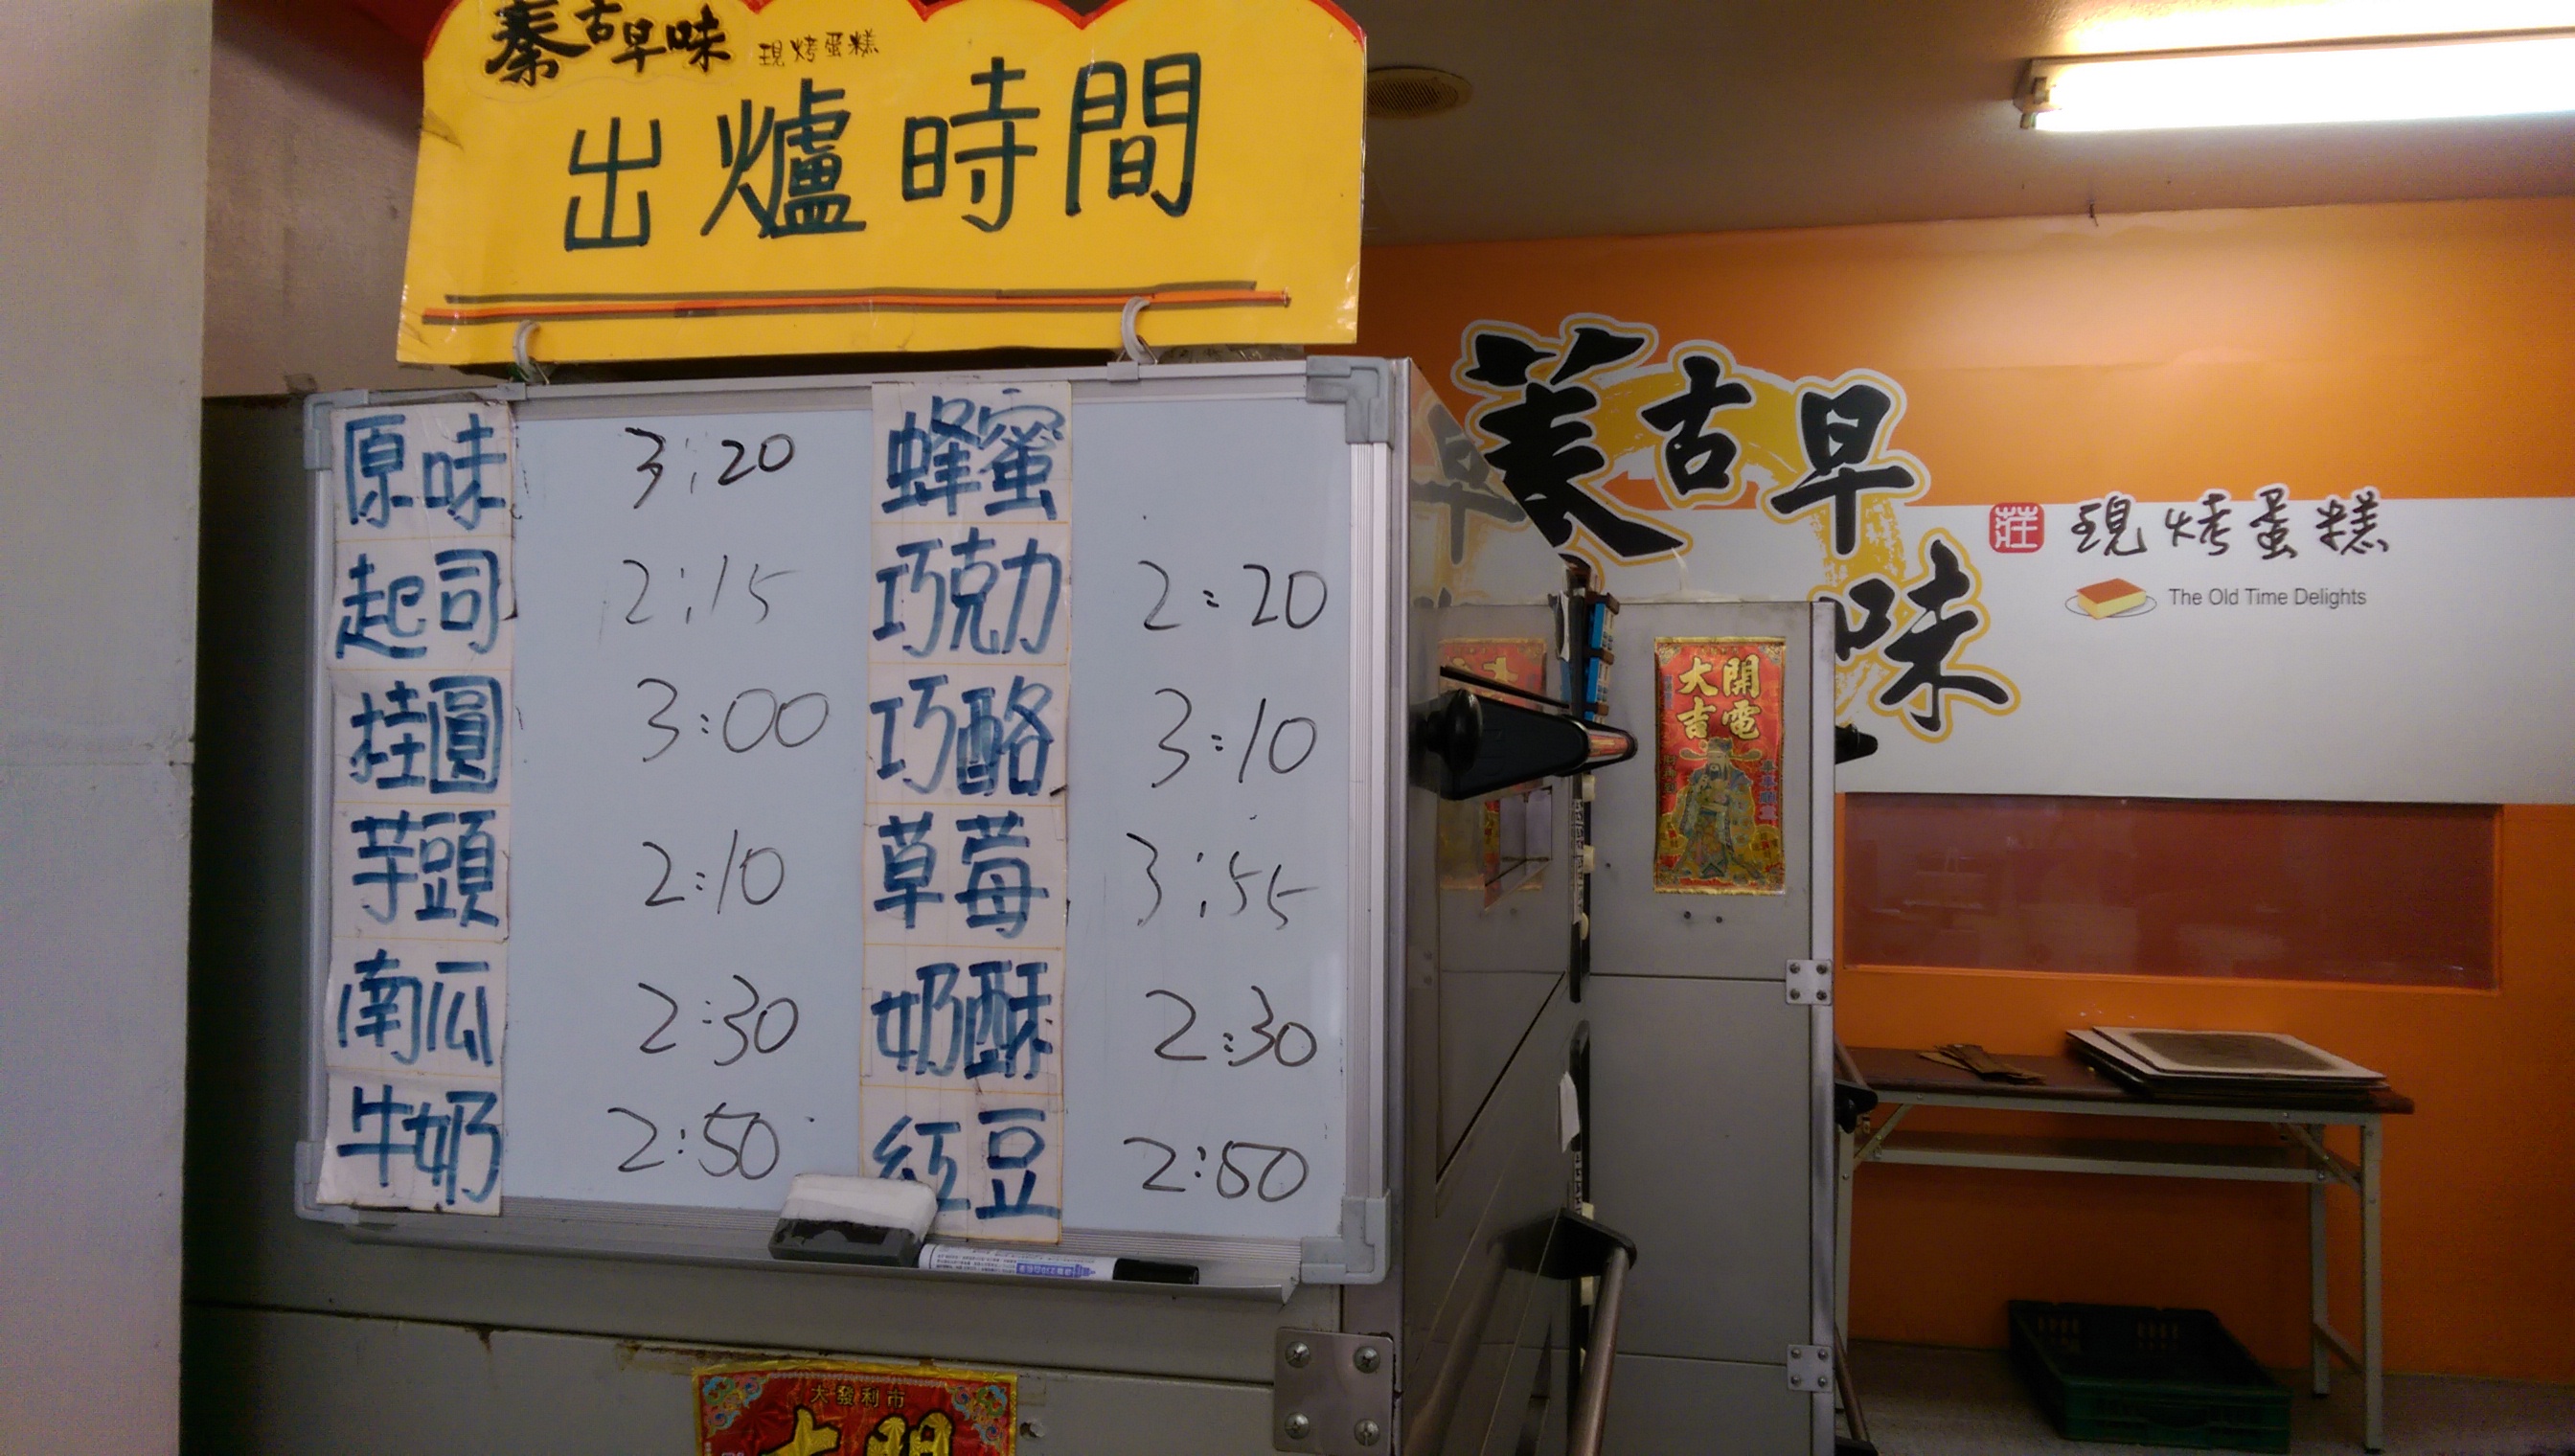 秦古早味 現烤蛋糕
出爐時間
原味 3:20 蜂蜜
起司 2:15 巧克力 2:20
桂圓 3:00 巧酪 3:10
芋頭 2:10 草莓 3:55
南瓜 2:30 奶酥 2:30
牛奶 2:50 紅豆 2:50
大發利市
古早味
莊 現烤蛋糕
The Old Time Delights
開電大吉